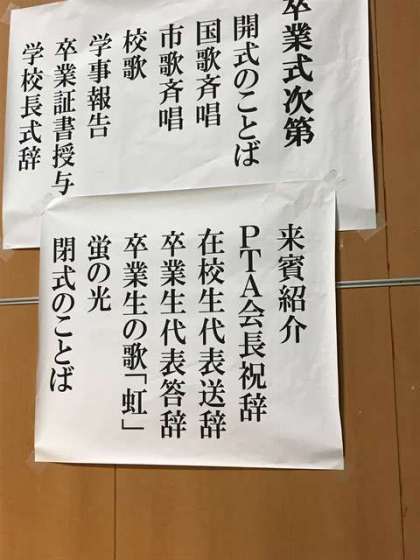 卒業式次第
開式のことば
国歌斉唱
市歌斉唱
校歌
学事報告
卒業証書授与
学校長式辞
来賓紹介
PTA会長祝辞
在校生代表送辞
卒業生代表答辞
卒業生の歌「虹」
蛍の光
閉式のことば